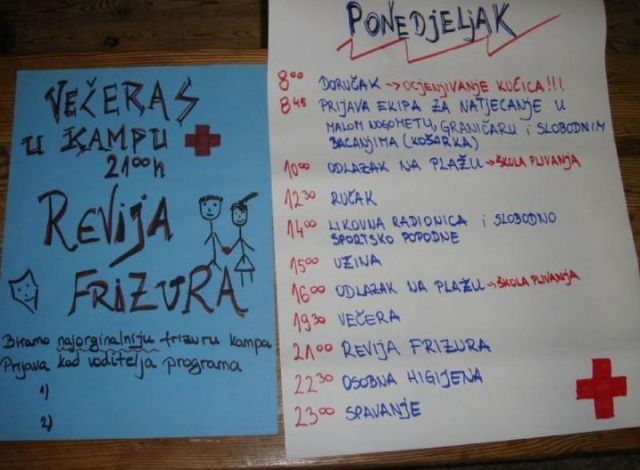 VEČERAS
U KAMPU
21⁰⁰h
REVIJA
FRIZURA
Biramo najorginalniju frizuru kampa
Prijava kod voditelja programa
1)
2)
PONEDJELJAK
8⁰⁰ DORUČAK → OCJENJIVANJE KUĆICA!!!
8⁴⁵ PRIJAVA EKIPA ZA NATJECANJE U
MALOM NOGOMETU, GRANIČARU i SLOBODNIM
BACANJIMA (KOŠARKA)
10⁰⁰ ODLAZAK NA PLAŽU → ŠKOLA PLIVANJA
12³⁰ RUČAK
14⁰⁰ LIKOVNA RADIONICA i SLOBODNO
SPORTSKO POPODNE
15⁰⁰ UŽINA
16⁰⁰ ODLAZAK NA PLAŽU → ŠKOLA PLIVANJA
19³⁰ VEČERA
21⁰⁰ REVIJA FRIZURA
22³⁰ OSOBNA HIGIJENA
23⁰⁰ SPAVANJE